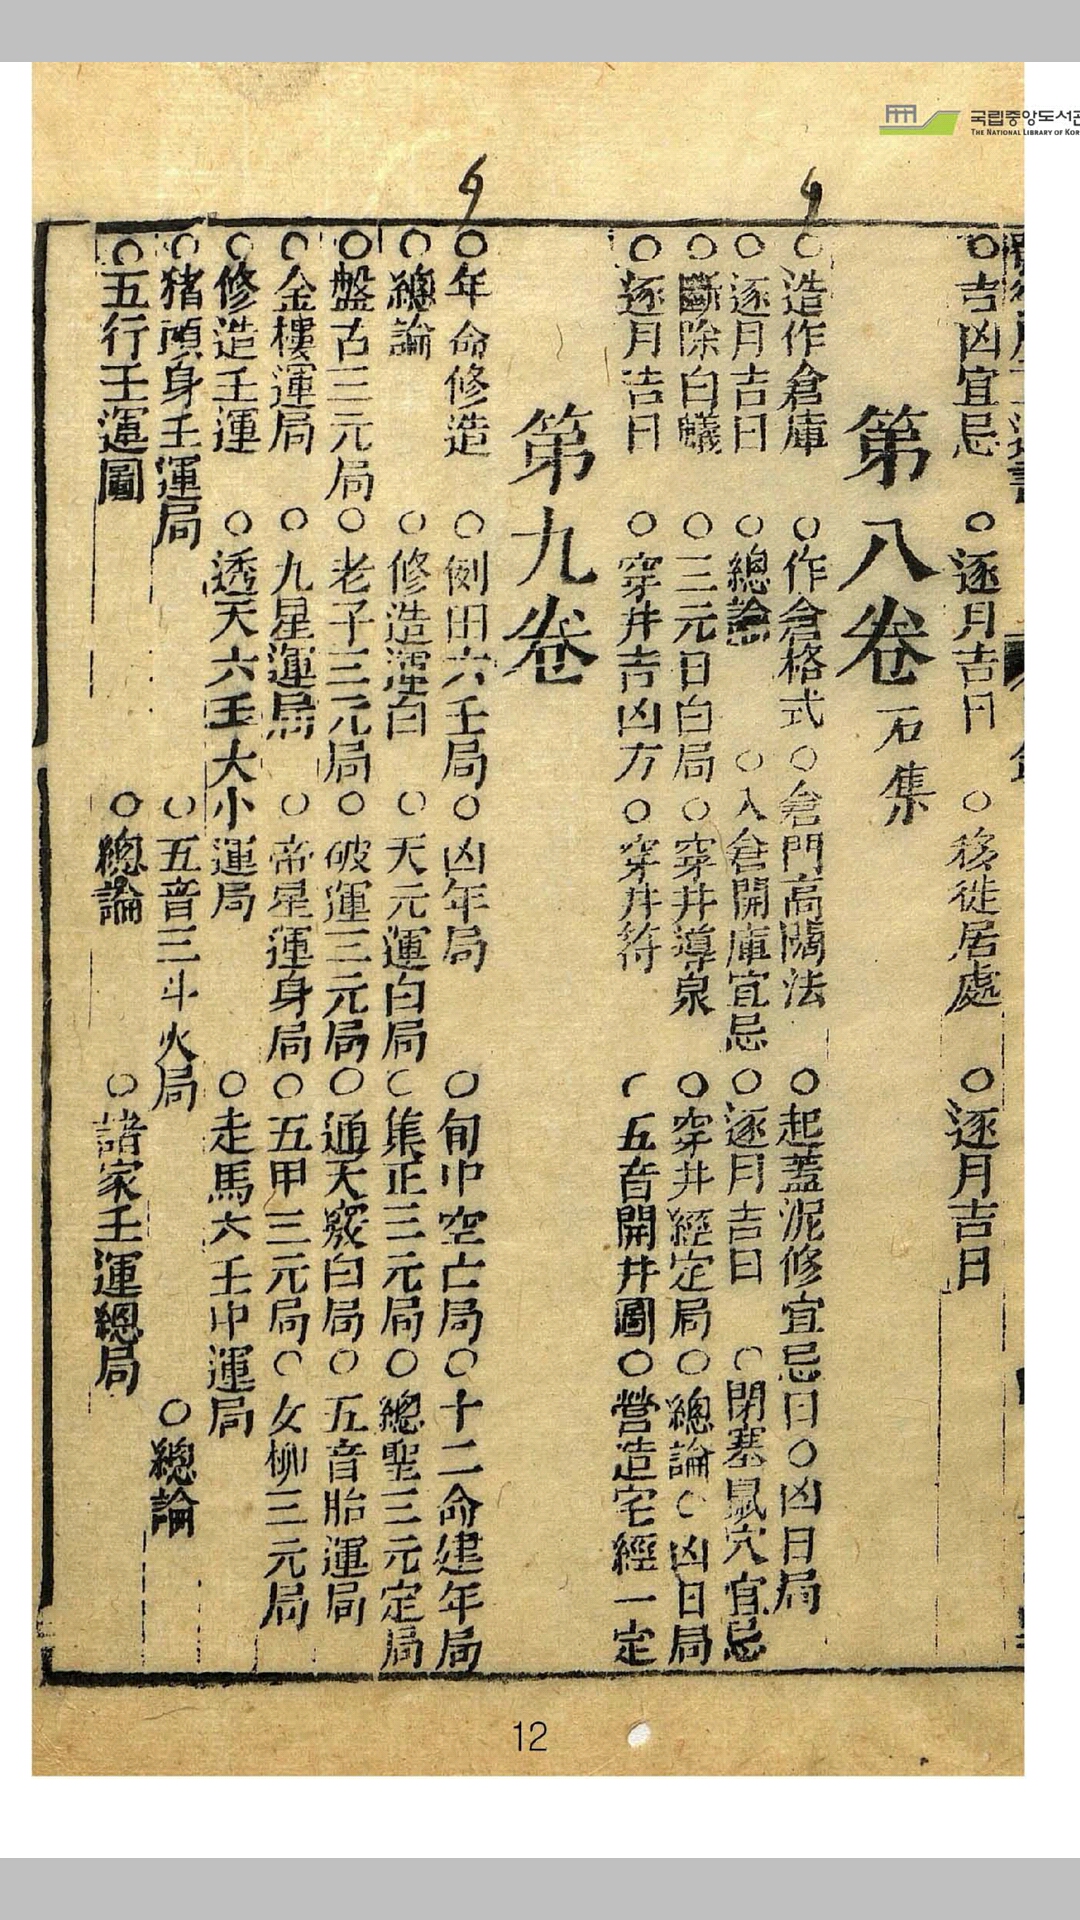 국립중앙도서관
THE NATIONAL LIBRARY OF KOR
○吉凶宜忌 ○逐月吉日 ○移徙居處 ○逐月吉日
第八卷 石集
○造作倉庫 ○作倉格式 ○倉門高闊法 ○起蓋泥修宜忌日 ○凶日局
○逐月吉日 ○總論 ○入倉開庫宜忌 ○逐月吉日 ○閉塞鼠穴宜忌
○斷除白蟻 ○三元日白局 ○穿井導泉 ○穿井經定局 ○總論 ○凶日局
○逐月吉日 ○穿井吉凶方 ○穿井符 ○五音開井圖 ○營造宅經一定
第九卷
○年命修造 ○側田六壬局 ○凶年局 ○旬中空亡局 ○十二命建年局
○總論 ○修造運白 ○天元運白局 ○集正三元局 ○總聖三元定局
○盤古三元局 ○老子三元局 ○破運三元局 ○通天竅白局 ○五音胎運局
○金樓運局 ○九星運局 ○帝星運身局 ○五甲三元局 ○女柳三元局
○修造壬運 ○透天六壬大小運局 ○走馬六壬中運局
○猪頭身壬運局 ○五音三斗火局 ○總論
○五行壬運圖 ○總論 ○諸家壬運總局
12